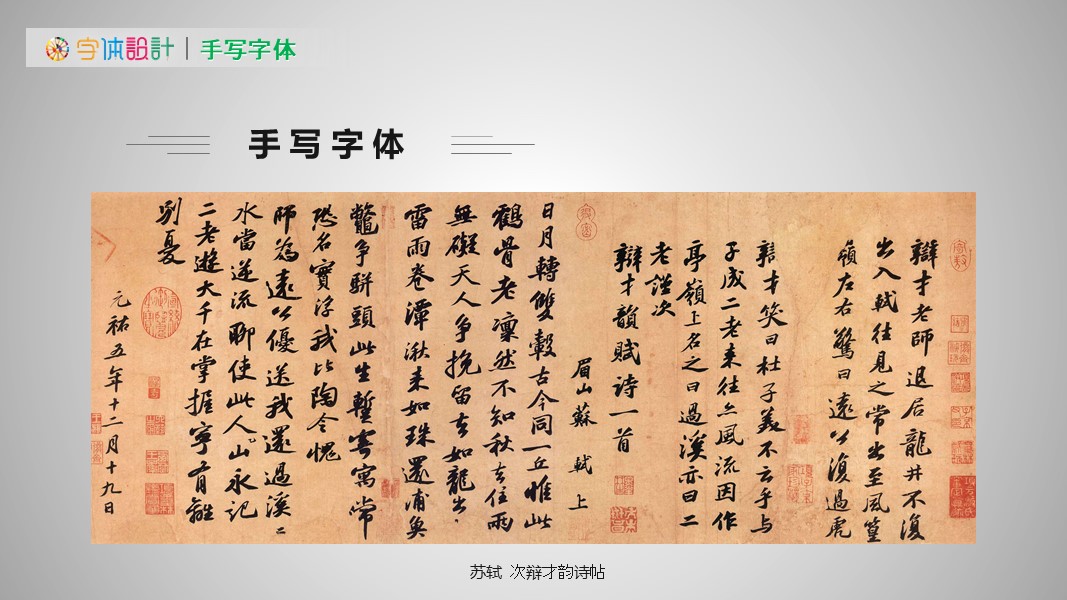 字体設計 | 手写字体
手写字体
辯才老師退居龍井不復
出入軾往見之常出至風篁
嶺左右驚曰遠公復過虎
辯才笑曰杜子美不云乎與
子成二老來往亦風流因作
亭嶺上名之曰過溪亦曰二
老謹次
辯才韻賦詩一首
眉山蘇軾上
日月轉雙轂古今同一丘惟此
鶴骨老凜然不知秋去住兩
無礙天人爭挽留去如龍出
雷雨卷潭湫來如珠還浦魚
鱉爭駢頭此生暫寄寓常
恐名實浮我比陶令愧
師為遠公優送我還過溪〻
水當逆流聊使此人山永記
二老遊大千在掌握寧有離
別憂
元祐五年十二月十九日
苏轼 次辩才韵诗帖